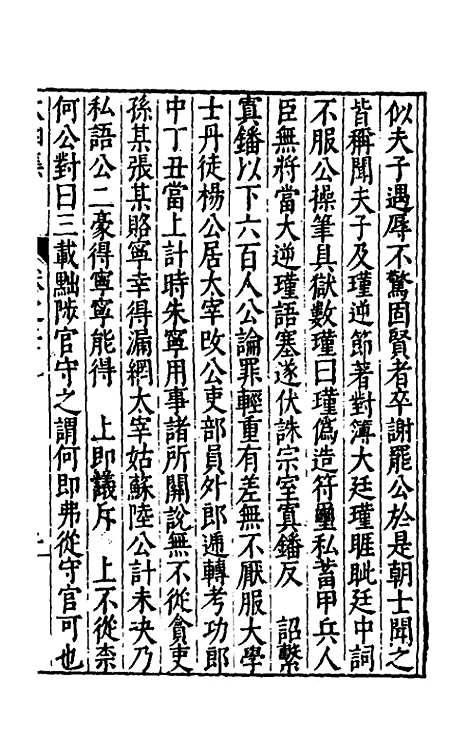 似夫子遇辱不驚固賢者卒謝罷公於是朝士聞之
皆稱聞夫子及瑾逆節著對簿大廷瑾睚眦廷中詞
不服公操筆具獄數瑾曰瑾偽造符璽私蓄甲兵人
臣無將當大逆瑾語塞遂伏誅宗室寘鐇反 詔繫
寘鐇以下六百人公論罪輕重有差無不厭服大學
士丹徒楊公居太宰改公吏部員外郎遞轉考功郎
中丁丑當上計時朱寧用事諸所關說無不從貪吏
孫某張某賂寧幸得漏網太宰姑蘇陸公計未決乃
私語公二豪得寧寧能得 上即議斥 上不從柰
何公對曰三載黜陟官守之謂何即弗從守官可也